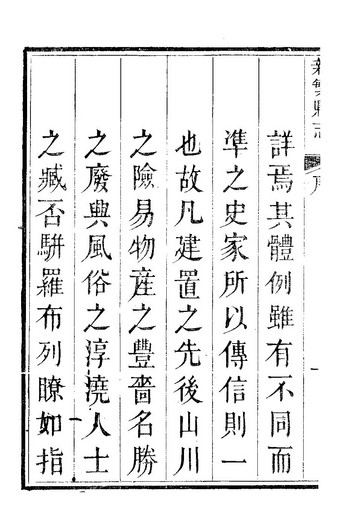 詳焉其體例雖有不同而
準之史家所以傳信則一
也故凡建置之先後山川
之險易物産之豐嗇名勝
之廢興風俗之淳澆人士
之臧否駢羅布列瞭如指